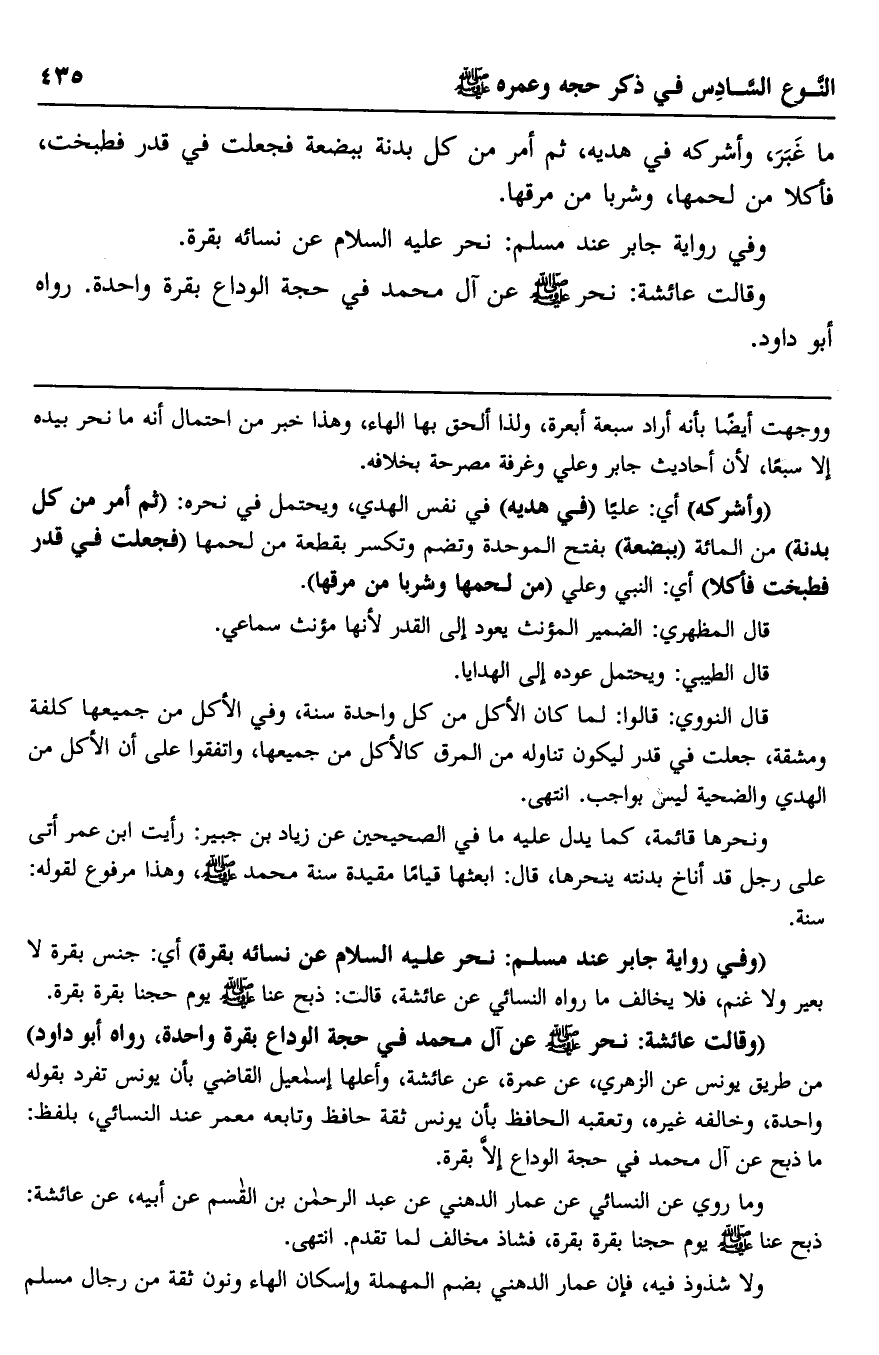 النَّوع السَّادِس في ذكر حجه وعمره ﷺ ٤٣٥
ما غَبَرَ، وأشركه في هديه، ثم أمر من كل بدنة ببضعة فجعلت في قدر فطبخت،
فأكلا من لحمها، وشربا من مرقها.
وفي رواية جابر عند مسلم: نحر عليه السلام عن نسائه بقرة.
وقالت عائشة: نحر ﷺ عن آل محمد في حجة الوداع بقرة واحدة. رواه
أبو داود.
ووجهت أيضًا بأنه أراد سبعة أبعرة، ولذا ألحق بها الهاء، وهذا خبر من احتمال أنه ما نحر بيده
إلا سبعًا، لأن أحاديث جابر وعلي وغرفة مصرحة بخلافه.
(وأشركه) أي: عليًا (في هديه) في نفس الهدي، ويحتمل في نحره: (ثم أمر من كل
بدنة) من المائة (ببضعة) بفتح الموحدة وتضم وتكسر بقطعة من لحمها (فجعلت في قدر
فطبخت فأكلا) أي: النبي وعلي (من لحمها وشربا من مرقها).
قال المظهري: الضمير المؤنث يعود إلى القدر لأنها مؤنث سماعي.
قال الطيبي: ويحتمل عوده إلى الهدايا.
قال النووي: قالوا: لما كان الأكل من كل واحدة سنة، وفي الأكل من جميعها كلفة
ومشقة، جعلت في قدر ليكون تناوله من المرق كالأكل من جميعها، واتفقوا على أن الأكل من
الهدي والضحية ليس بواجب. انتهى.
ونحرها قائمة، كما يدل عليه ما في الصحيحين عن زياد بن جبير: رأيت ابن عمر أتى
على رجل قد أناخ بدنته ينحرها، قال: ابعثها قيامًا مقيدة سنة محمد ﷺ، وهذا مرفوع لقوله:
سنة.
(وفي رواية جابر عند مسلم: نحر عليه السلام عن نسائه بقرة) أي: جنس بقرة لا
بعير ولا غنم، فلا يخالف ما رواه النسائي عن عائشة، قالت: ذبح عنا ﷺ يوم حجنا بقرة بقرة.
(وقالت عائشة: نحر ﷺ عن آل محمد في حجة الوداع بقرة واحدة، رواه أبو داود)
من طريق يونس عن الزهري، عن عمرة، عن عائشة، وأعلها إسمٰعيل القاضي بأن يونس تفرد بقوله
واحدة، وخالفه غيره، وتعقبه الحافظ بأن يونس ثقة حافظ وتابعه معمر عند النسائي، بلفظ:
ما ذبح عن آل محمد في حجة الوداع إلاَّ بقرة.
وما روي عن النسائي عن عمار الدهني عن عبد الرحمٰن بن القٰسم عن أبيه، عن عائشة:
ذبح عنا ﷺ يوم حجنا بقرة بقرة، فشاذ مخالف لما تقدم. انتهى.
ولا شذوذ فيه، فإن عمار الدهني بضم المهملة وإسكان الهاء ونون ثقة من رجال مسلم